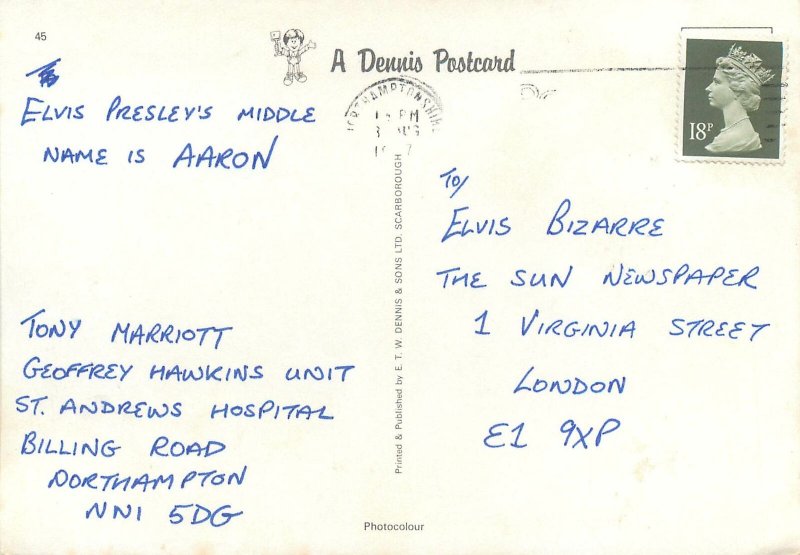 45
A Dennis Postcard
ELVIS PRESLEY'S MIDDLE
NAME IS AARON
TONY MARRIOTT
GEOFFREY HAWKINS UNIT
ST. ANDREWS HOSPITAL
BILLING ROAD
NORTHAMPTON
NN1 5DG
Printed & Published by E. T. W. DENNIS & SONS LTD. SCARBOROUGH
Photocolour
18P
TO/
ELVIS BIZARRE
THE SUN NEWSPAPER
1 VIRGINIA STREET
LONDON
E1 9XP